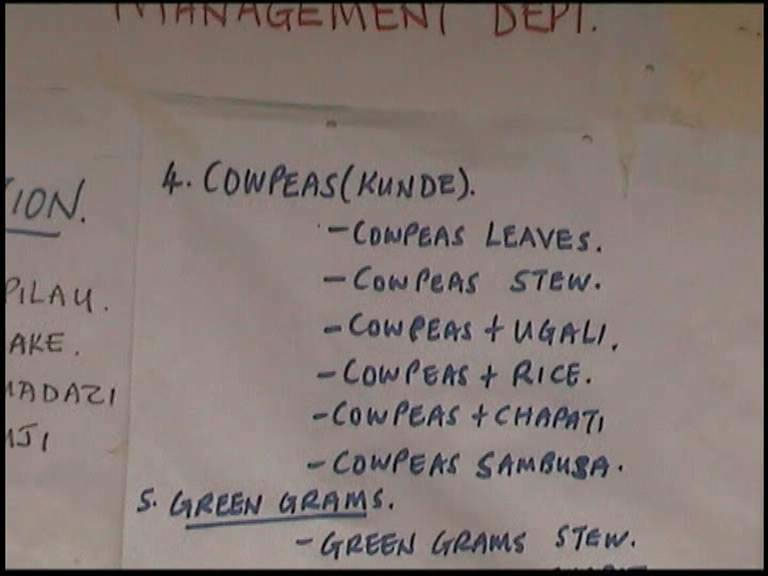 MANAGEMENT DEPT.
4. COWPEAS (KUNDE).
- COWPEAS LEAVES.
- COWPEAS STEW.
- COWPEAS + UGALI.
- COWPEAS + RICE.
- COWPEAS + CHAPATI
- COWPEAS SAMBUSA.
5. GREEN GRAMS.
- GREEN GRAMS STEW.
ION.
PILAU.
AKE.
MADAZI